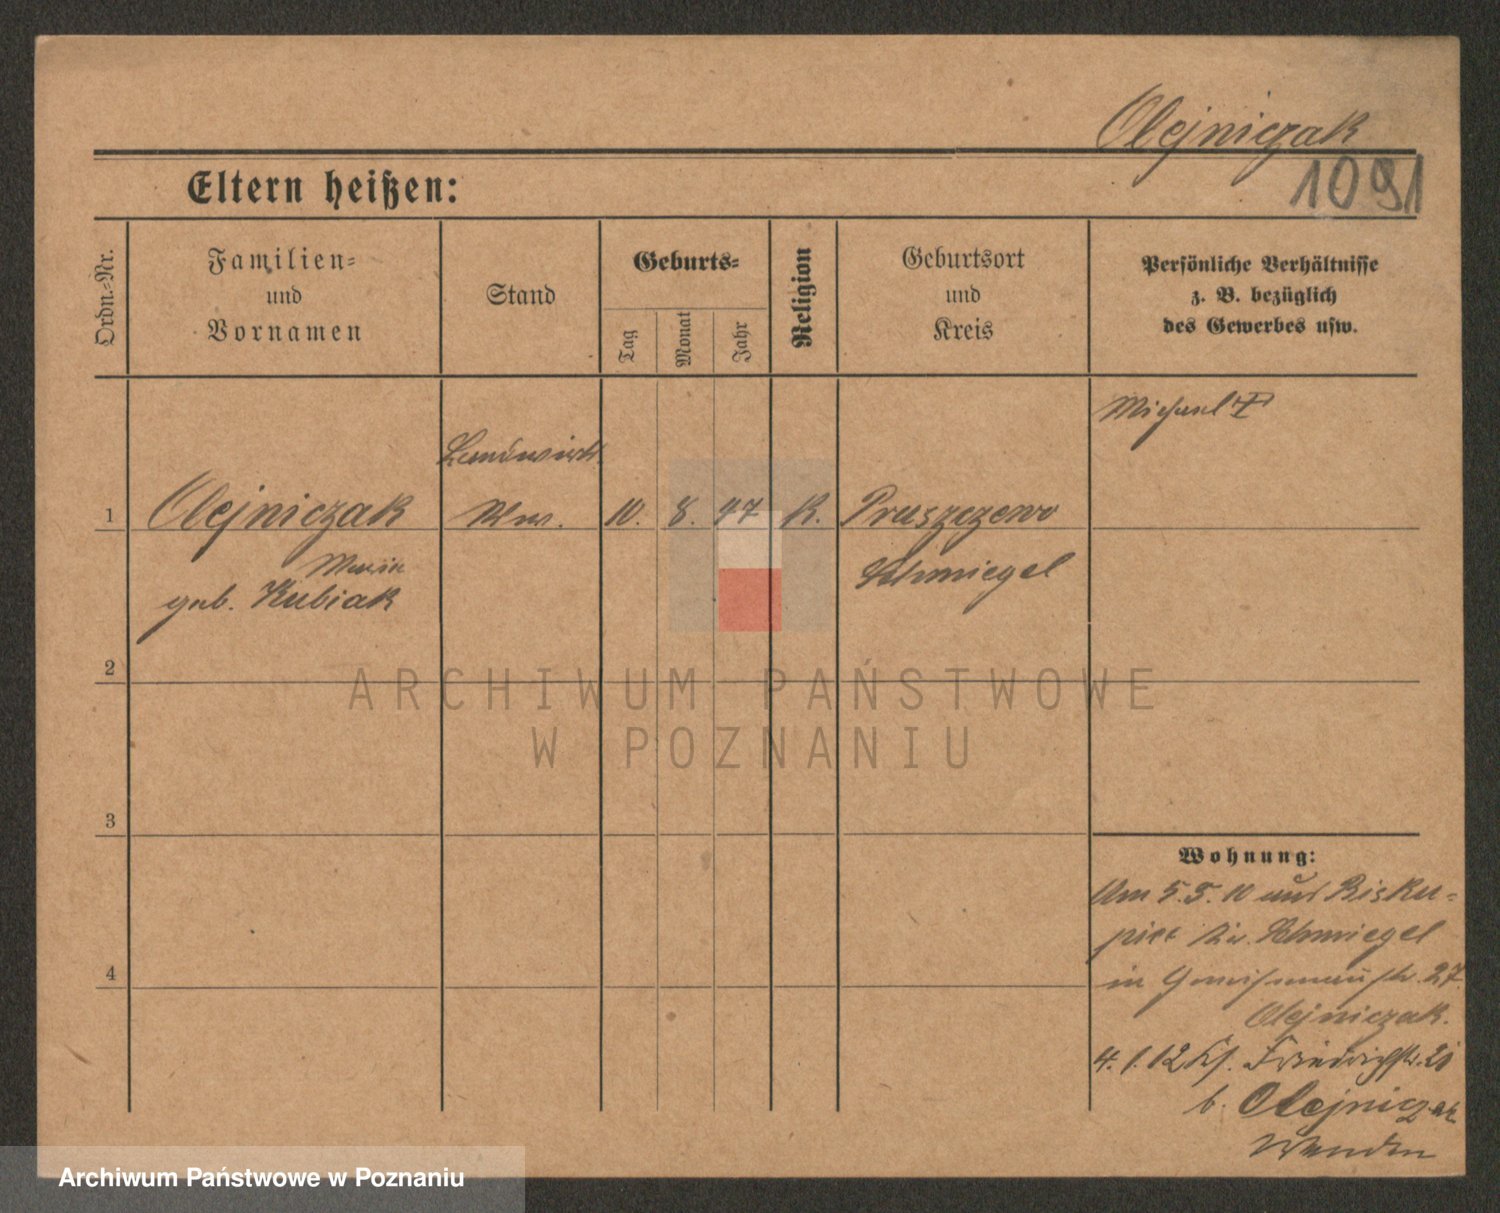 Olejniczak
1091
Eltern heißen:
Ordn.-Nr.
Familien-
und
Vornamen
Stand
Geburts-
Tag
Monat
Jahr
Religion
Geburtsort
und
Kreis
Persönliche Verhältnisse
z. B. bezüglich
des Gewerbes usw.
Michael
Landwirth
1
Olejniczak
Ww.
10.
8.
47
K.
Pruszczewo
Maria
geb. Kubiak
Schmiegel
2
3
4
ARCHIWUM PAŃSTWOWE
W POZNANIU
Wohnung:
Am 5.5.10 aus Bisku-
Kr. Schmiegel
in Gneisenaustr. 27
Olejniczak.
4. 1. 12 Friedrichstr. 21
b. Olejniczak
Archiwum Państwowe w Poznaniu